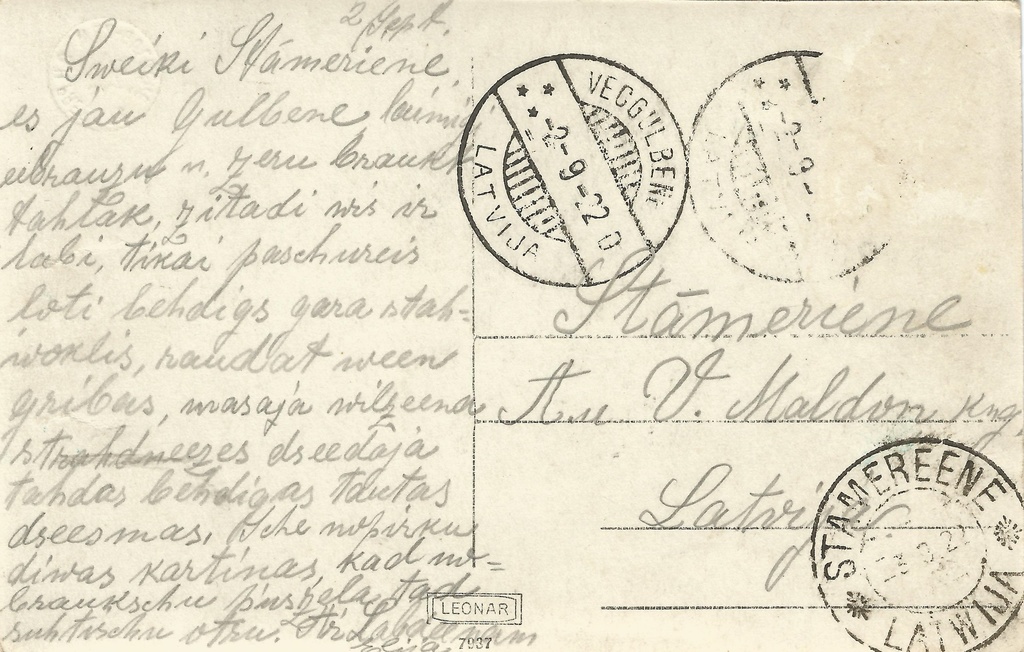 2 Sept.
Sweiki Stámeriene,
es jau Gulbene laimigi
usbrauzu n, zeru braukt
tahlak, zitadi wis ir
labi, tikai paschureis
loti behdigs gara stah=
woklis, raudat ween
gribas, masajá wilzeena
strahdneezes dseedaja
tahdas behdigas tautas
dseesmas, Sche nopirku
diwas kartinas, kad no=
braukschu puszela, tad
suhtischu otru. Ar Labdeenam
VECGULBENE
-2-9-22 D
LATVIJA
-2-9-
LATVIJA
Stámeriéne
A. u V. Maldon kng.
Latvija
STAMEREENE
-3.9.22
LATWIJA
LEONAR
7937